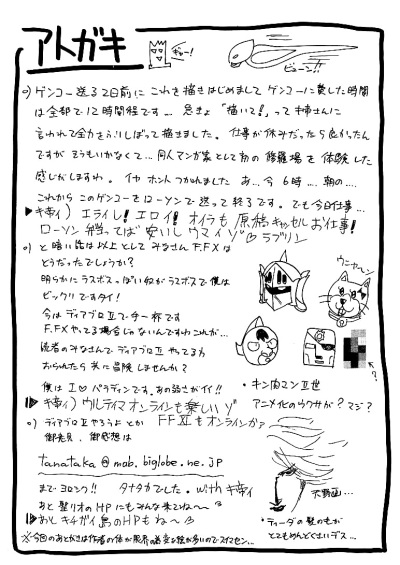 アトガキ
ギャー!
ビューン!!
○)ゲンコー送る2日前に これを描きはじめまして ゲンコーに費した時間
は全部で12時間程です… 急きょ「描いて!」って姉さんに
言われて全力をふりしぼって描きました。仕事が休みだったら良かったん
ですが そうもいかなくて… 同人マンガ家として初の修羅場を体験した
感じがしますわ。イヤ ホント つかれました あ…今6時…朝の…
これからこのゲンコーをローソンで送って終了です。でも今日仕事…
エライし!エロイ!オイラも原稿 お仕事!
ローソン 安いし ウマイゾ ラブリン
○)と暗い話は以上として みなさん F.FⅨは
どうだったでしょうか?
明らかにラスボスっぽいねがラスボスで僕は
ビックリですタイ!
今はディアブロⅡで手一杯です
F.FⅨやってる場合じゃないんですわこれが…
読者のみなさんでディアブロⅡやってる方
おられたら 共に冒険しませんか?
僕は I♡パラディンです。あの弱さがイイ!!
ウルティマオンラインも楽しいゾ
○)ディアブロⅡやろうよ とか FFⅪもオンラインかァ
御意見、御感想は
tanataka@mab.biglobe.ne.jp
まで ヨロシク!! タナタカでした。with
あと 整りオのHPにもみんな来てね〜
あと キチガイ島のHPもね〜
※今回のあとがきは作者の体が限界の為変な絵が多いのでスイマセン…
ウニャ〜ン
?
・キン肉マンⅡ世
アニメ化のウワサが? マジ?
天野画…
・ティーダの髪のもが
とてもめんどくさいデス…